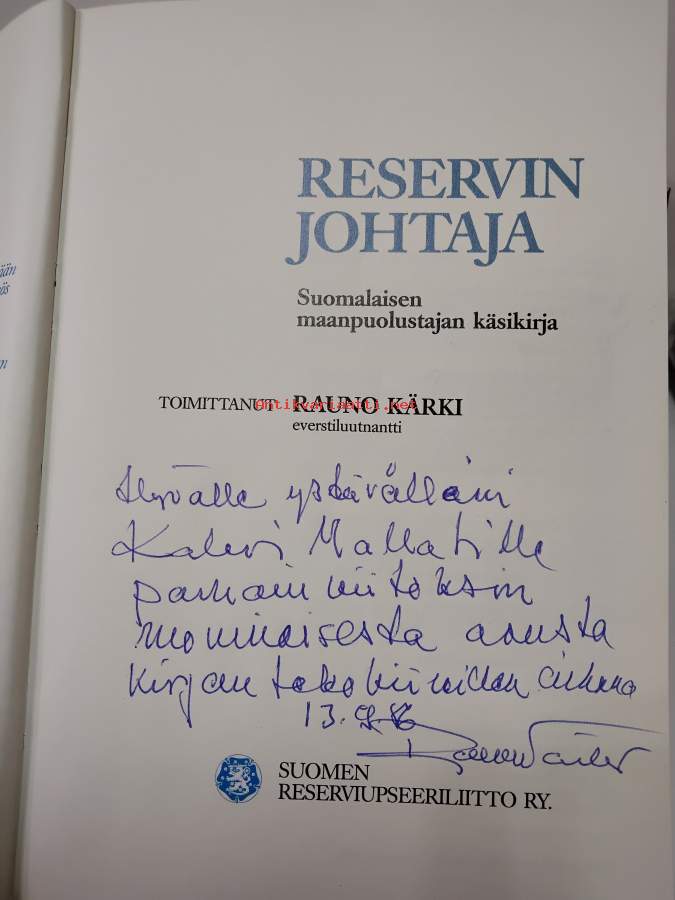 ään
ös
n
RESERVIN
JOHTAJA
Suomalaisen
maanpuolustajan käsikirja
TOIMITTANUT RAUNO KÄRKI
Antikvariaatti.net
everstiluutnantti
Hyvälle ystävälleni
Kalevi
parhain kiitoksin
moninaisesta avusta
kirjan tekokiireiden aikana
13.9.86
SUOMEN
RESERVIUPSEERILIITTO RY.